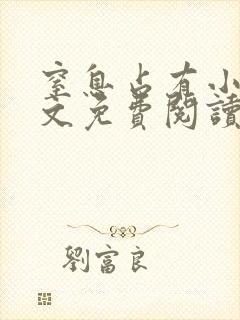 窒息占有小
文免費閱讀
劉富良